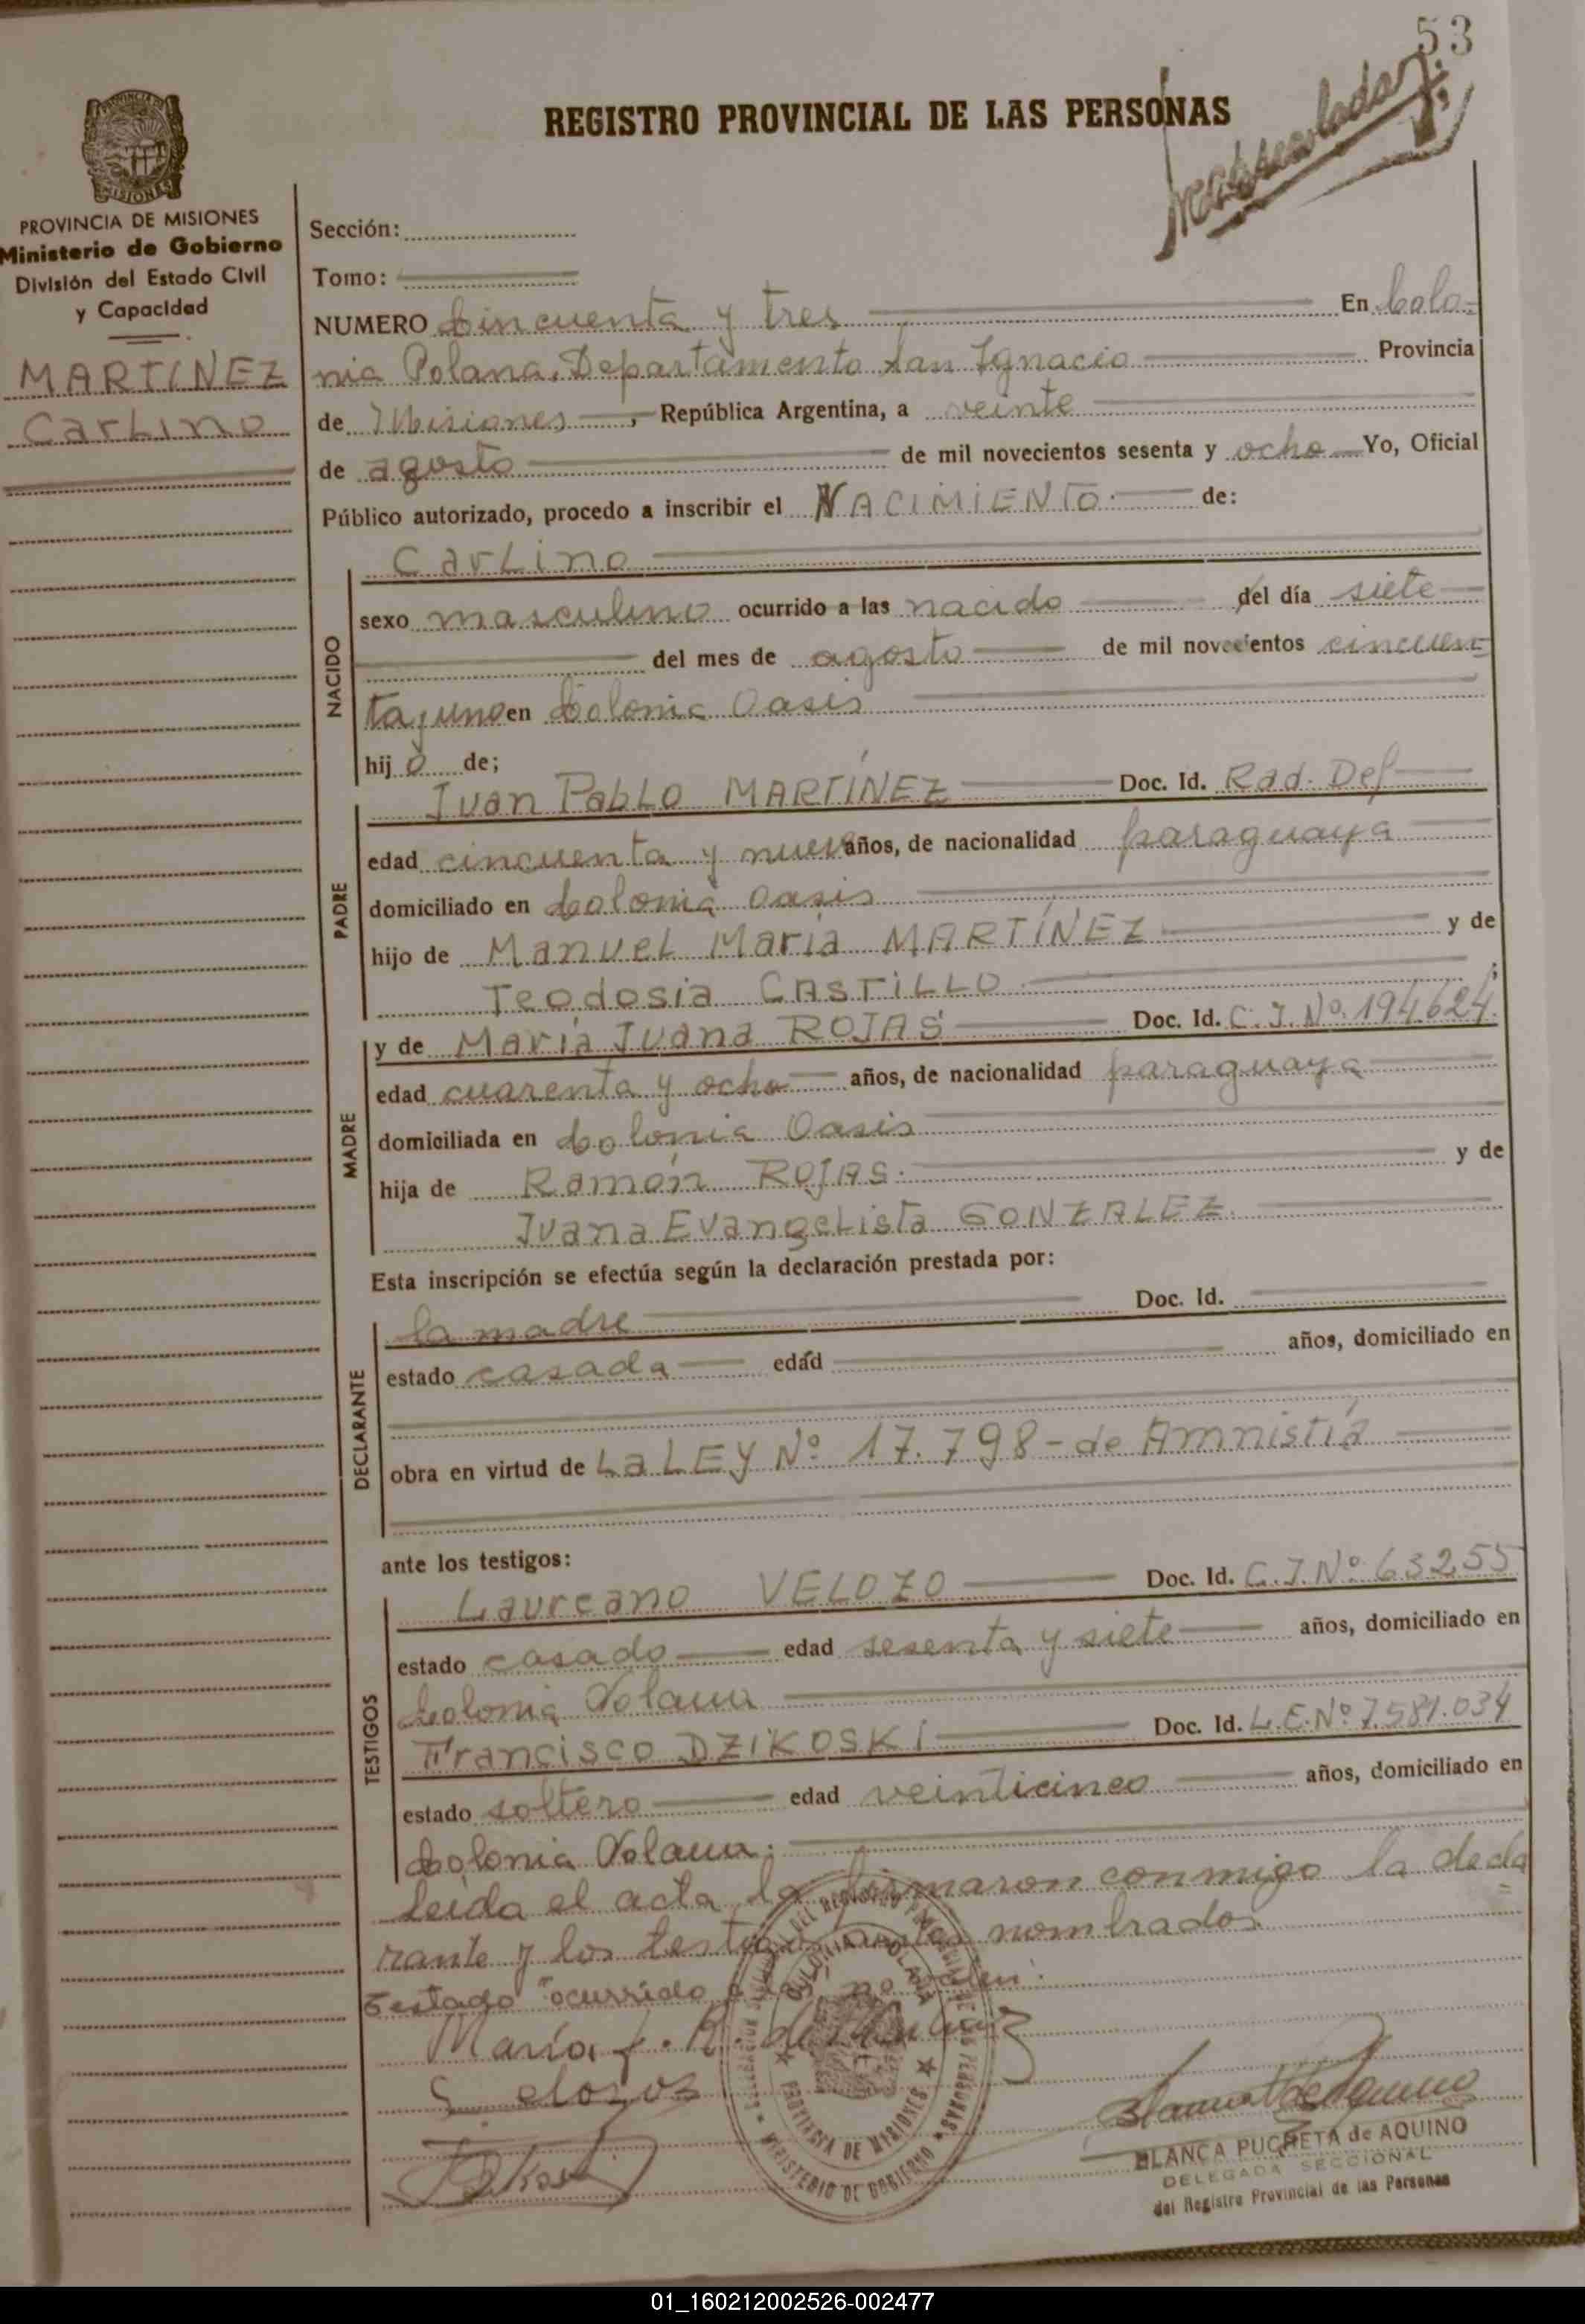 53
REGISTRO PROVINCIAL DE LAS PERSONAS
PROVINCIA DE MISIONES
Ministerio de Gobierno
División del Estado Civil
y Capacidad
MARTINEZ
Carlino
Sección:
Tomo:
NUMERO Cincuenta y tres En Colo-
nia Polana, Departamento San Ignacio Provincia
de Misiones, República Argentina, a veinte
de agosto de mil novecientos sesenta y ocho Yo, Oficial
Público autorizado, procedo a inscribir el NACIMIENTO. de:
NACIDO
Carlino
sexo masculino ocurrido a las nacido del día siete
del mes de agosto de mil novecientos cincuen-
ta y uno en Colonia Oasis
hijo de;
PADRE
Juan Pablo MARTÍNEZ Doc. Id. Rad. Def
edad cincuenta y nueve años, de nacionalidad paraguaya
domiciliado en Colonia Oasis
hijo de Manuel María MARTÍNEZ y de
Teodosia CASTILLO. ;
MADRE
y de María Juana ROJAS Doc. Id. C. I. Nº 194.624.
edad cuarenta y ocho años, de nacionalidad paraguaya
domiciliada en Colonia Oasis
hija de Ramón ROJAS. y de
Juana Evangelista GONZALEZ.
Esta inscripción se efectúa según la declaración prestada por:
DECLARANTE
la madre Doc. Id.
estado casada edad años, domiciliado en
obra en virtud de La LEY Nº 17.798 - de Amnistía
ante los testigos:
TESTIGOS
Laureano VELOZO Doc. Id. C. I. Nº 63255
estado casado edad sesenta y siete años, domiciliado en
Colonia Polana
Francisco DZIKOSKI Doc. Id. L.E. Nº 7.581.034
estado soltero edad veinticinco años, domiciliado en
Colonia Polana.
Leída el acta, la firmaron conmigo la decla
rante y los testigos antes nombrados.
Testado "ocurrido a las", no valen.
María J. R. de
BLANCA PUCHETA de AQUINO
DELEGADA SECCIONAL
del Registro Provincial de las Personas
COLONIA POLANA
PROVINCIA DE MISIONES
MINISTERIO DE GOBIERNO
01_160212002526-002477